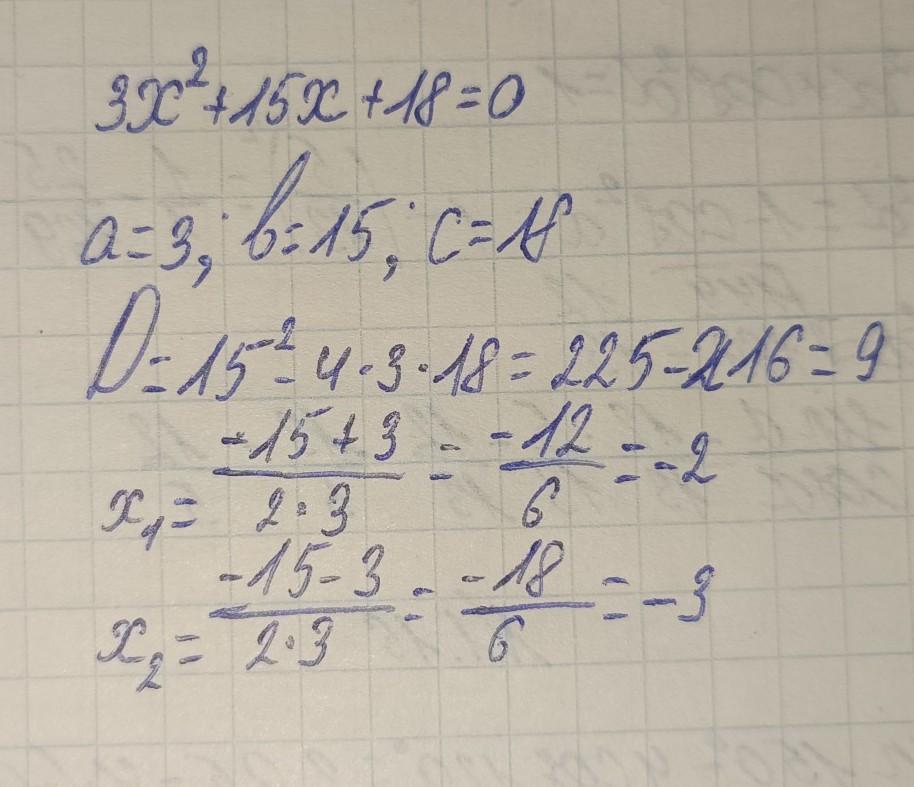 3x²+15x+18=0
a=3; b=15; c=18
D=15²-4·3·18=225-216=9
x₁=(-15+3)/(2·3)=(-12)/6=-2
x₂=(-15-3)/(2·3)=(-18)/6=-3